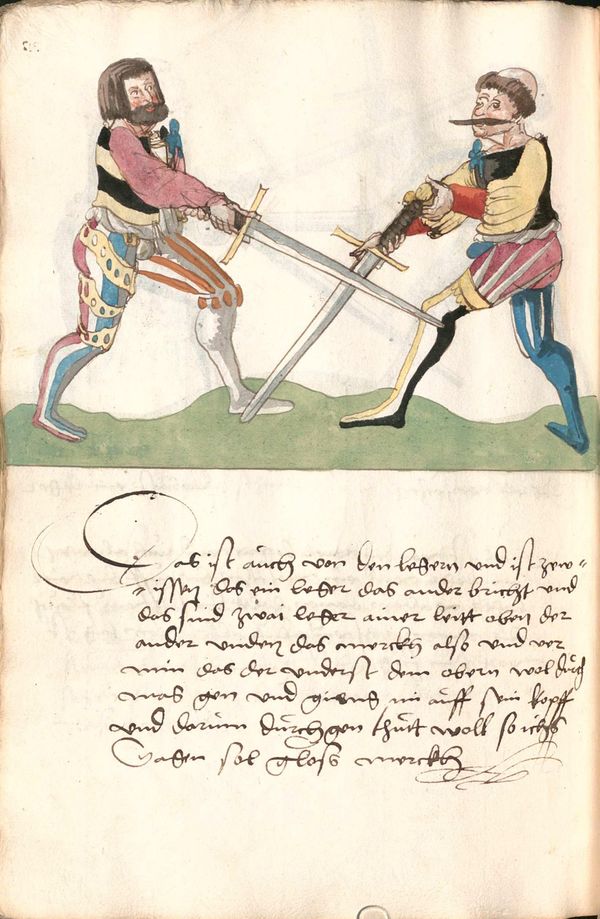 Das ist auch von den legern und ist zew=
wissen das ein leger das ander bricht und
das sind zwai leger ainer leitt oben der
ander unden das merckh also und ver
nim das der underst dem obern wol durch
mas gen und auff sein kopff
und darum durchgon thutt woll so ichss
sagen sol gloss merckh